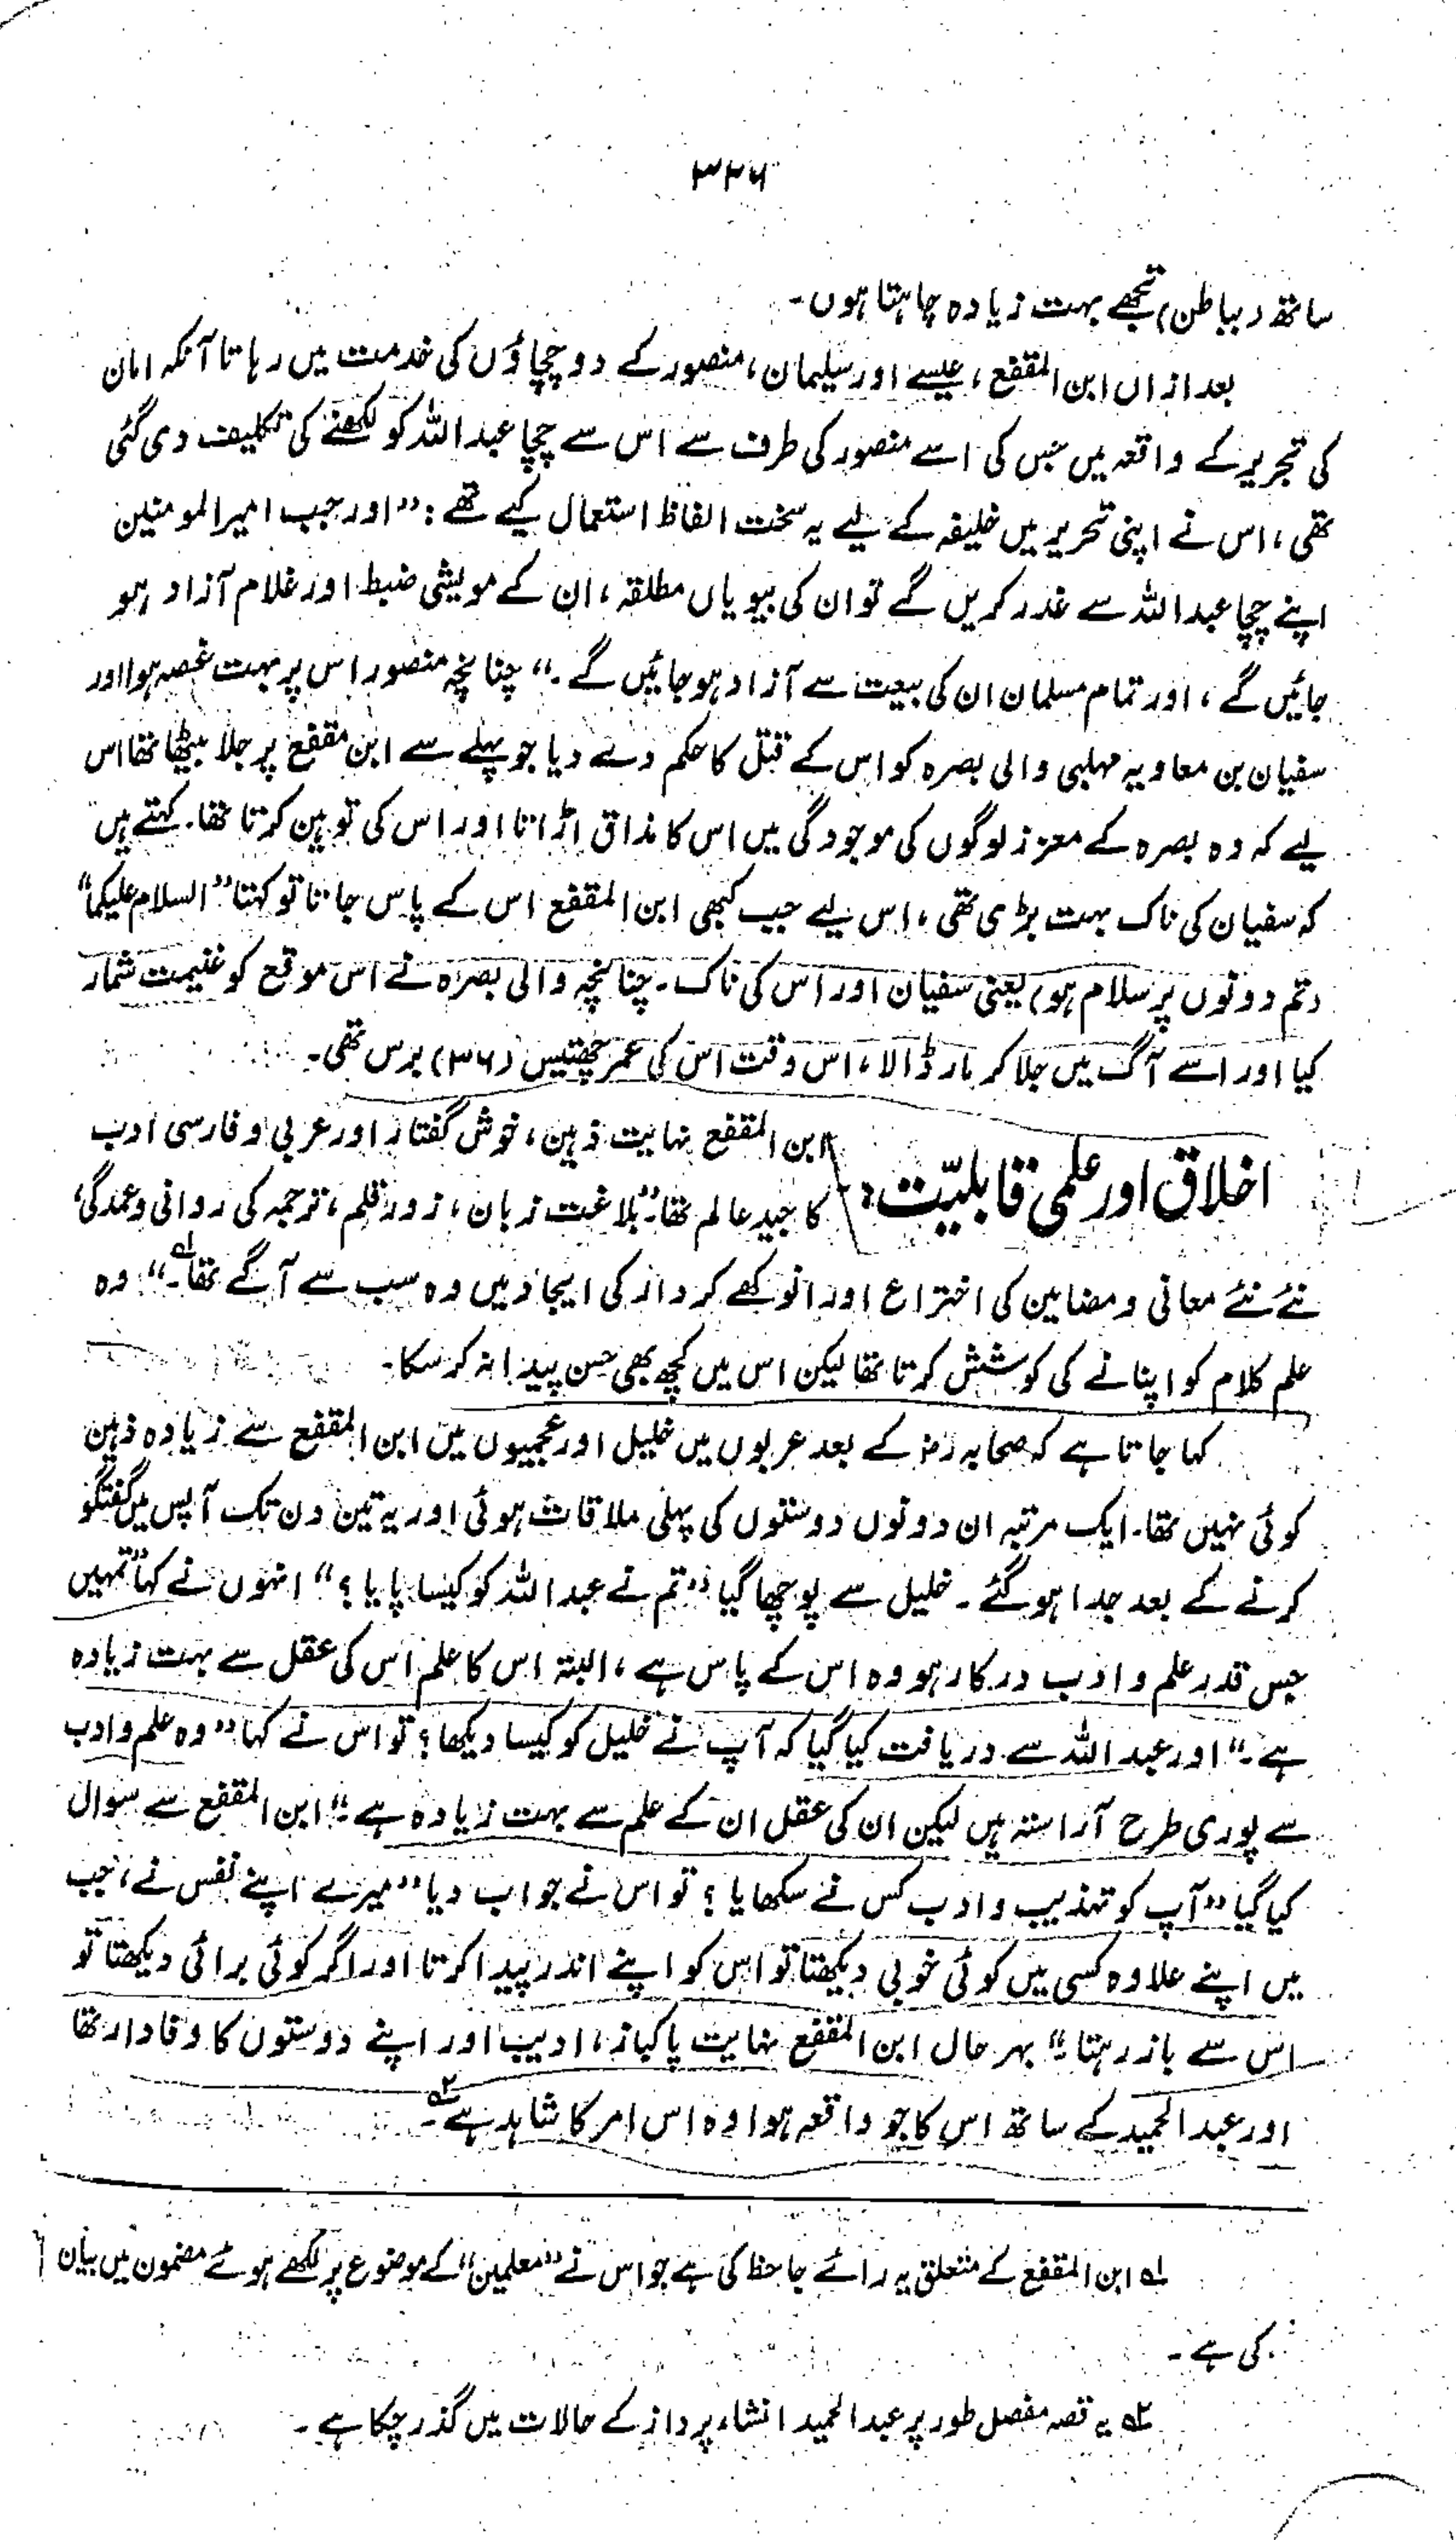 ۳۲۶
ساتھ (بباطن) تجھے بہت زیادہ چاہتا ہوں۔
بعد ازاں ابن المقفع، عیسے اور سلیمان، منصور کے دو چچاؤں کی خدمت میں رہا تا آنکہ امان
کی تحریر کے واقعہ میں جس کی اسے منصور کی طرف سے اس سے چچا عبد اللہ کو لکھنے کی تکلیف دی گئی
تھی، اس نے اپنی تحریر میں خلیفہ کے لیے یہ سخت الفاظ استعمال کیے تھے: "اور جب امیر المومنین
اپنے چچا عبد اللہ سے غدر کریں گے تو ان کی بیویاں مطلقہ، ان کے مویشی ضبط اور غلام آزاد ہو
جائیں گے، اور تمام مسلمان ان کی بیعت سے آزاد ہو جائیں گے۔" چنانچہ منصور اس پر بہت غصہ ہوا اور
سفیان بن معاویہ مہلبی والی بصرہ کو اس کے قتل کا حکم دے دیا جو پہلے سے ابن مقفع پر جلا بیٹھا تھا اس
لیے کہ وہ بصرہ کے معزز لوگوں کی موجودگی میں اس کا مذاق اڑاتا اور اس کی توہین کرتا تھا۔ کہتے ہیں
کہ سفیان کی ناک بہت بڑی تھی، اس لیے جب کبھی ابن المقفع اس کے پاس جاتا تو کہتا "السلام علیکما"
(تم دونوں پر سلام ہو) یعنی سفیان اور اس کی ناک۔ چنانچہ والی بصرہ نے اس موقع کو غنیمت شمار
کیا اور اسے آگ میں جلا کر مار ڈالا، اس وقت اس کی عمر چھتیس (۳۶) برس تھی۔
اخلاق اور علمی قابلیّت:
ابن المقفع نہایت ذہین، خوش گفتار اور عربی و فارسی ادب
کا جید عالم تھا۔ "بلاغت زبان، زور قلم، ترجمہ کی روانی و عمدگی،
نئے نئے معانی و مضامین کی اختراع اور انوکھے کردار کی ایجاد میں وہ سب سے آگے تھا۔"۱؎ وہ
علم کلام کو اپنانے کی کوشش کرتا تھا لیکن اس میں کچھ بھی حسن پیدا نہ کر سکا۔
کہا جاتا ہے کہ صحابہ رضؓ کے بعد عربوں میں خلیل اور عجمیوں میں ابن المقفع سے زیادہ ذہین
کوئی نہیں تھا۔ ایک مرتبہ ان دونوں دوستوں کی پہلی ملاقات ہوئی اور یہ تین دن تک آپس میں گفتگو
کرنے کے بعد جدا ہو گئے۔ خلیل سے پوچھا گیا "تم نے عبد اللہ کو کیسا پایا؟" انہوں نے کہا "تمہیں
جس قدر علم و ادب درکار ہو وہ اس کے پاس ہے، البتہ اس کا علم اس کی عقل سے بہت زیادہ
ہے۔" اور عبد اللہ سے دریافت کیا گیا کہ آپ نے خلیل کو کیسا دیکھا؟ تو اس نے کہا "وہ علم و ادب
سے پوری طرح آراستہ ہیں لیکن ان کی عقل ان کے علم سے بہت زیادہ ہے۔" ابن المقفع سے سوال
کیا گیا "آپ کو تہذیب و ادب کس نے سکھایا؟ تو اس نے جواب دیا "میرے اپنے نفس نے، جب
میں اپنے علاوہ کسی میں کوئی خوبی دیکھتا تو اس کو اپنے اندر پیدا کرتا اور اگر کوئی برائی دیکھتا تو
اس سے باز رہتا۔" بہر حال ابن المقفع نہایت پاکباز، ادیب اور اپنے دوستوں کا وفادار تھا
اور عبد الحمید کے ساتھ اس کا جو واقعہ ہوا وہ اس امر کا شاہد ہے۔۲؎
۱؎ ابن المقفع کے متعلق یہ رائے جاحظ کی ہے جو اس نے "معلمین" کے موضوع پر لکھے ہوئے مضمون میں بیان
کی ہے۔
۲؎ یہ قصہ مفصل طور پر عبد الحمید انشاء پرداز کے حالات میں گذر چکا ہے۔